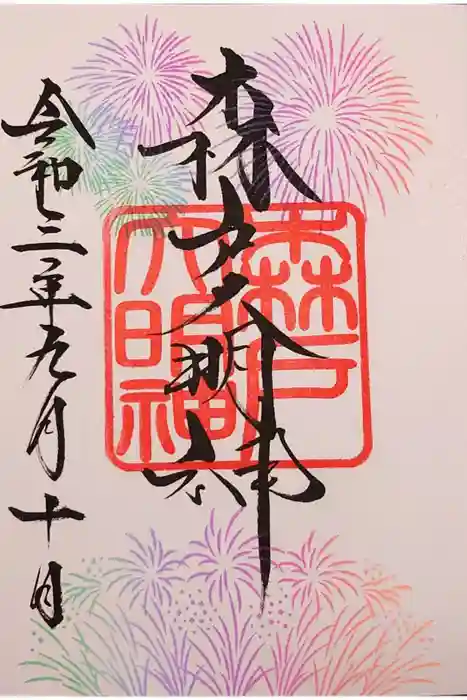 森戸大明神
森戸
大明神
令和三年九月十日